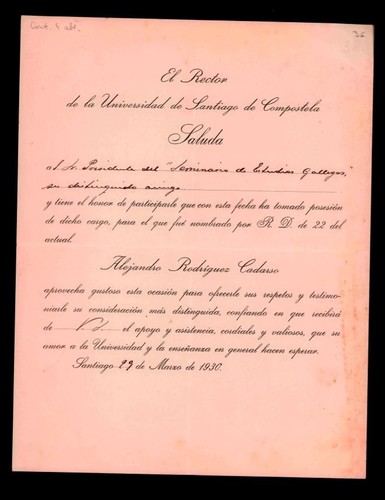 Cont. 1 abr.
El Rector
de la Universidad de Santiago de Compostela
Saluda
al Sr. Presidente del "Seminario de Estudios Gallegos,
su distinguido amigo
y tiene el honor de participarle que con esta fecha ha tomado posesión
de dicho cargo, para el que fué nombrado por R. D. de 22 del
actual.
Alejandro Rodríguez Cadarso
aprovecha gustoso esta ocasión para ofrecerle sus respetos y testimo-
niarle su consideración más distinguida, confiando en que recibirá
de Vd. el apoyo y asistencia, cordiales y valiosos, que su
amor a la Universidad y la enseñanza en general hacen esperar.
Santiago 29 de Marzo de 1930.